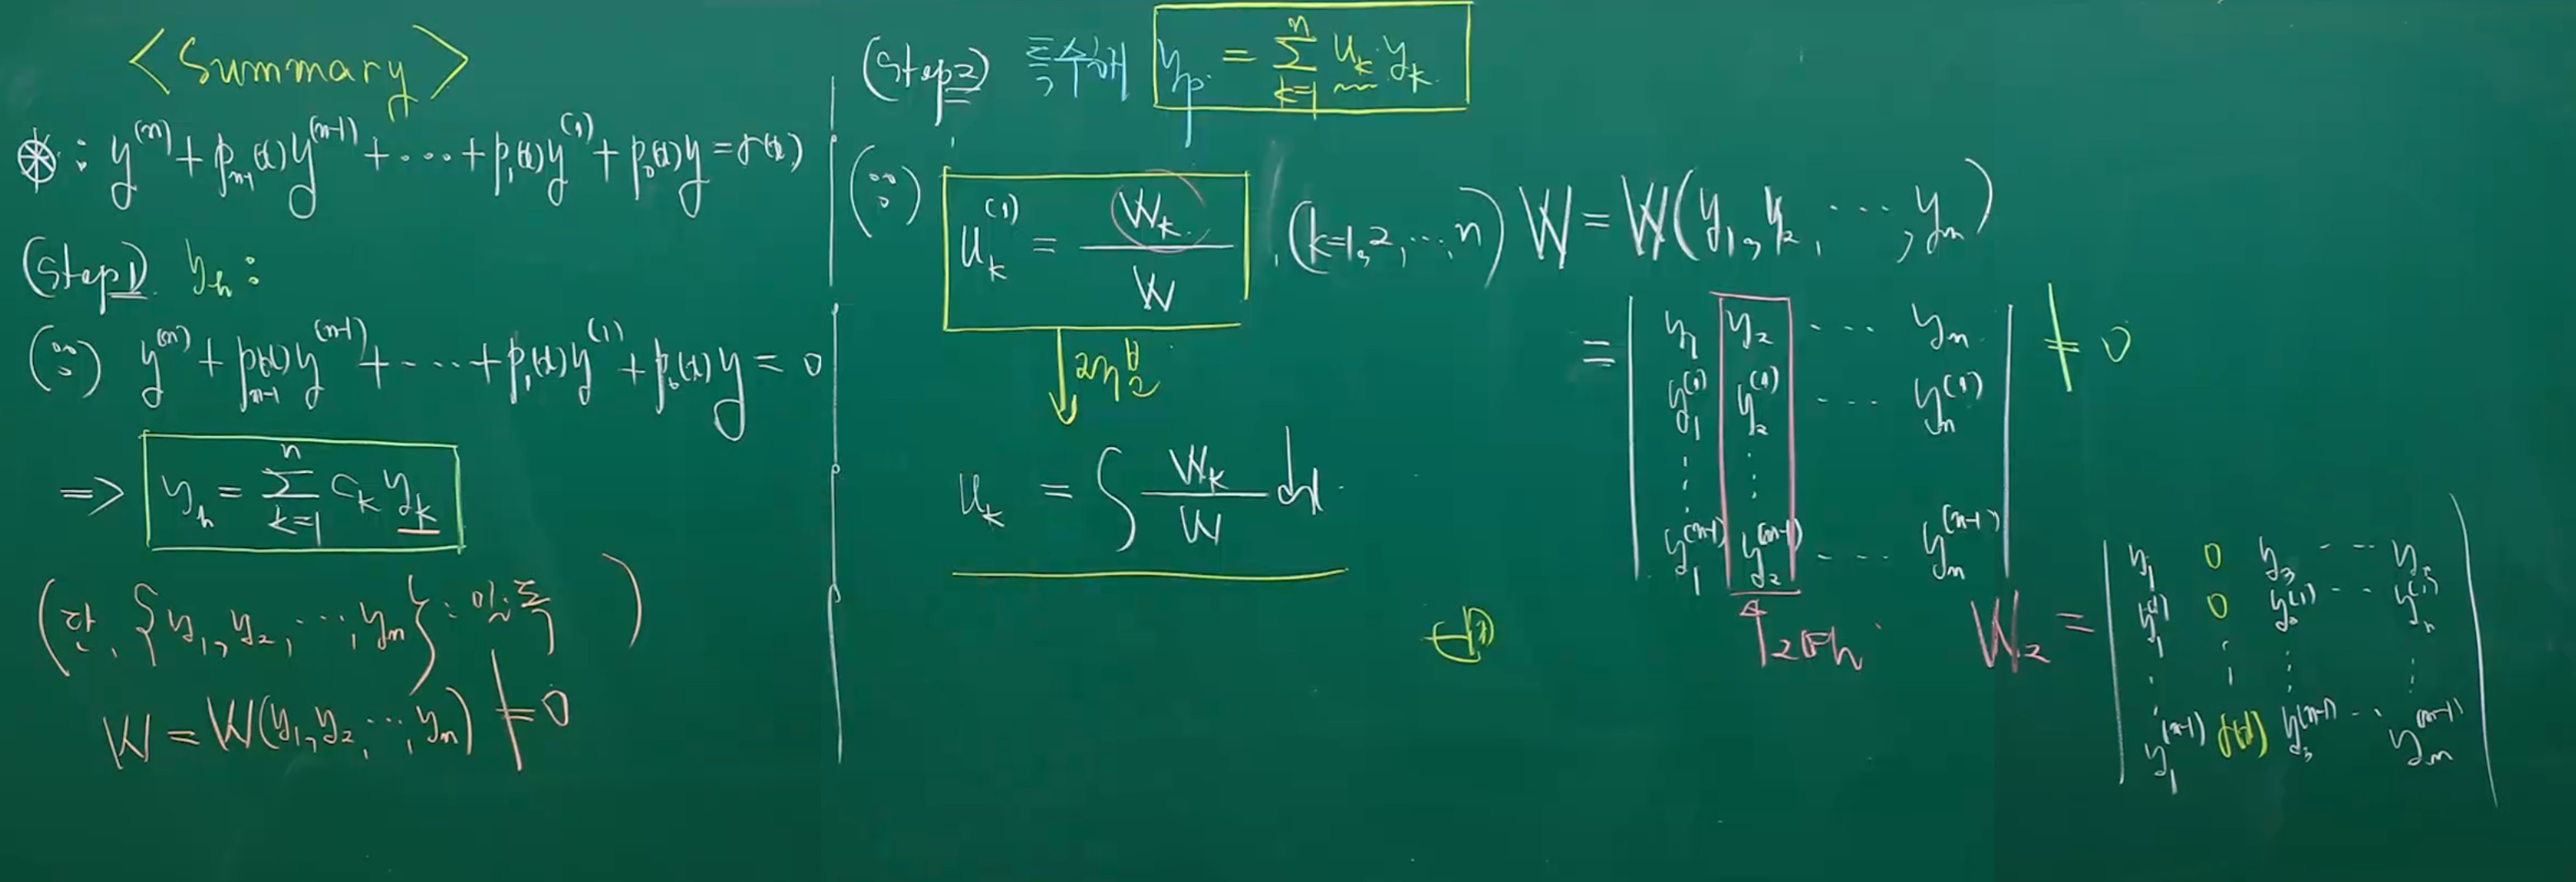 <Summary>
⊛ : y⁽ⁿ⁾ + pₙ₋₁(x)y⁽ⁿ⁻¹⁾ + ⋯ + p₁(x)y⁽¹⁾ + p₀(x)y = r(x)
(Step1) yₕ :
(∵) y⁽ⁿ⁾ + pₙ₋₁(x)y⁽ⁿ⁻¹⁾ + ⋯ + p₁(x)y⁽¹⁾ + p₀(x)y = 0
⇒ yₕ = Σ_{k=1}^{n} cₖ yₖ
(단, {y₁, y₂, ⋯, yₙ} : 일차독립)
W = W(y₁, y₂, ⋯, yₙ) ≠ 0
(Step2) 특수해 yₚ = Σ_{k=1}^{n} uₖ yₖ
(∵) uₖ⁽¹⁾ = Wₖ / W , (k=1, 2, ⋯, n) W = W(y₁, y₂, ⋯, yₙ)
적분
uₖ = ∫ Wₖ / W dx
= | y₁ y₂ ⋯ yₙ | ≠ 0
| y₁⁽¹⁾ y₂⁽¹⁾ ⋯ yₙ⁽¹⁾ |
| ⋮ ⋮ |
| y₁⁽ⁿ⁻¹⁾ y₂⁽ⁿ⁻¹⁾ ⋯ yₙ⁽ⁿ⁻¹⁾ |
W₂ = | y₁ 0 y₃ ⋯ yₙ |
| y₁⁽¹⁾ 0 y₃⁽¹⁾ ⋯ yₙ⁽¹⁾ |
| ⋮ ⋮ ⋮ ⋮ |
| y₁⁽ⁿ⁻¹⁾ r(x) y₃⁽ⁿ⁻¹⁾ ⋯ yₙ⁽ⁿ⁻¹⁾ |